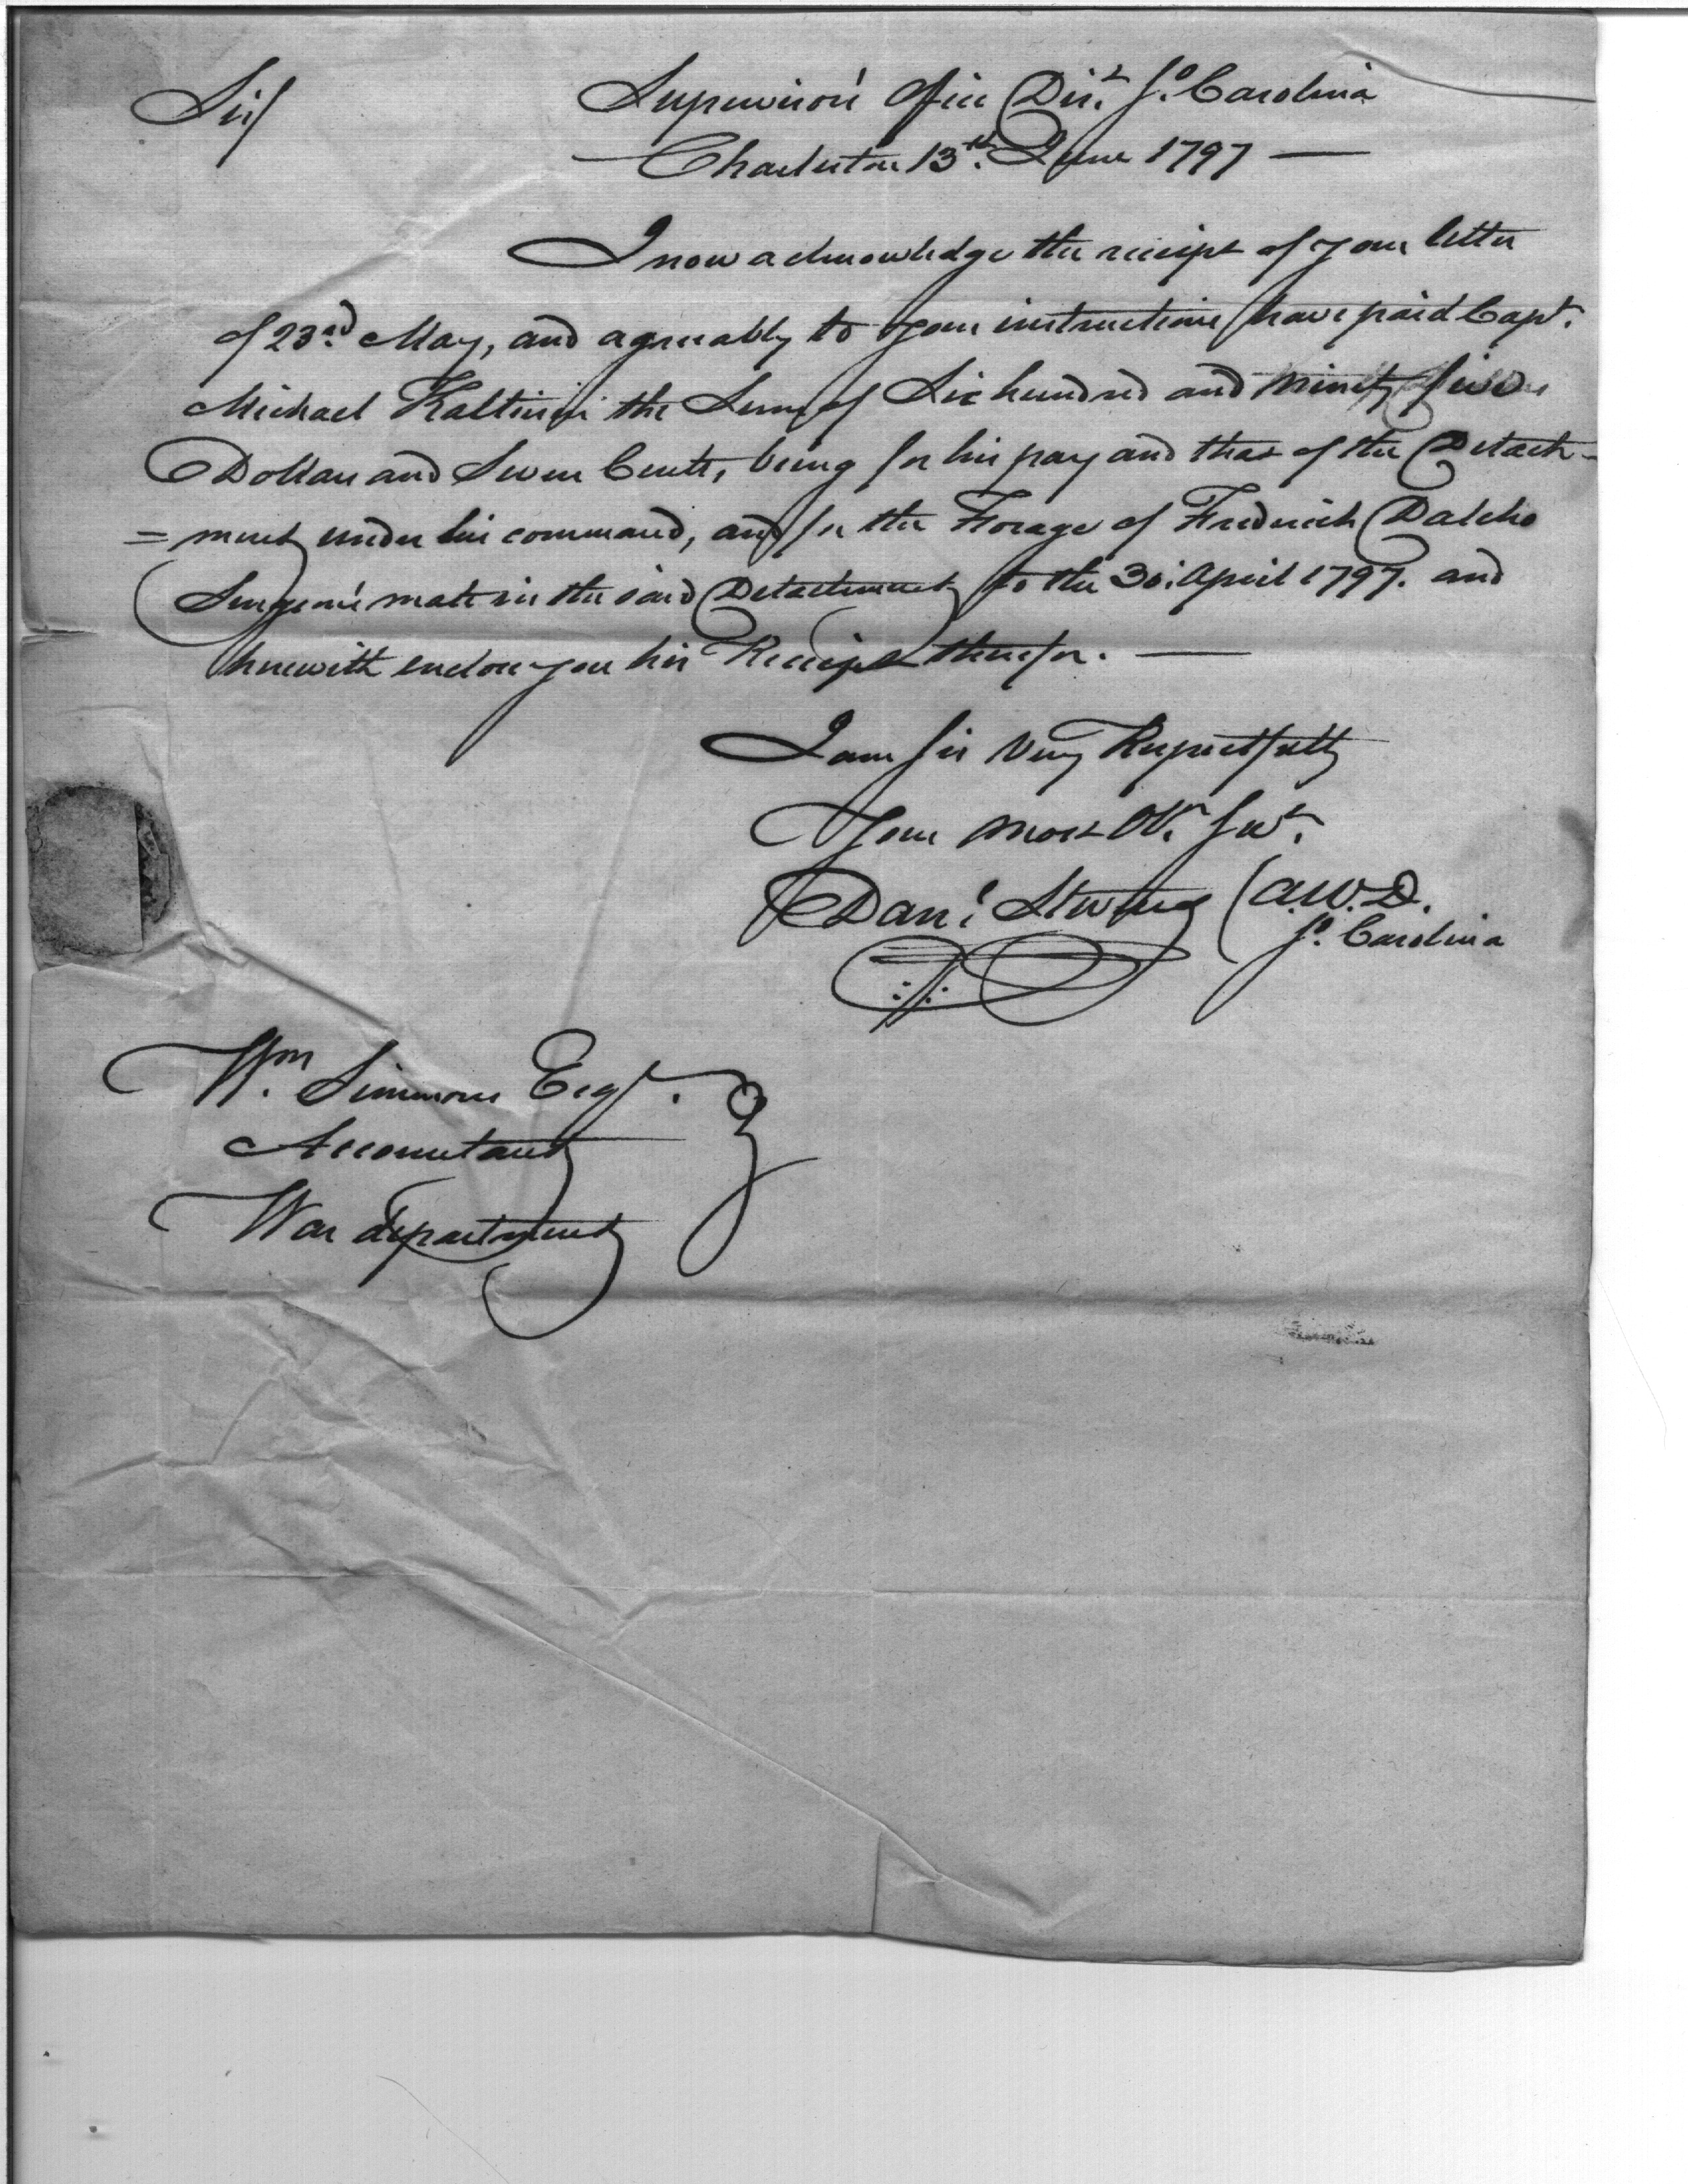 Sir/
Supervisors Office Dist. So. Carolina
Charleston 13th. June 1797
I now acknowledge the receipt of your letter
of 23rd. May, and agreeably to your instructions have paid Capt.
Michael Kalteisen the Sum of Six hundred and Ninety five
Dollars and Seven Cents, being for his pay and that of the Detach-
=ment under his command, and for the Forage of Frederick Dalcho
Surgeons mate in the said Detachment to the 30. April 1797. and
herewith enclose you his Receipt therefor.
I am Sir Very Respectfully
Your most Ob. Sert.
Danl. Stevens (A.W.D.
So. Carolina
Wm. Simmons Esqr.
Accountant
War department